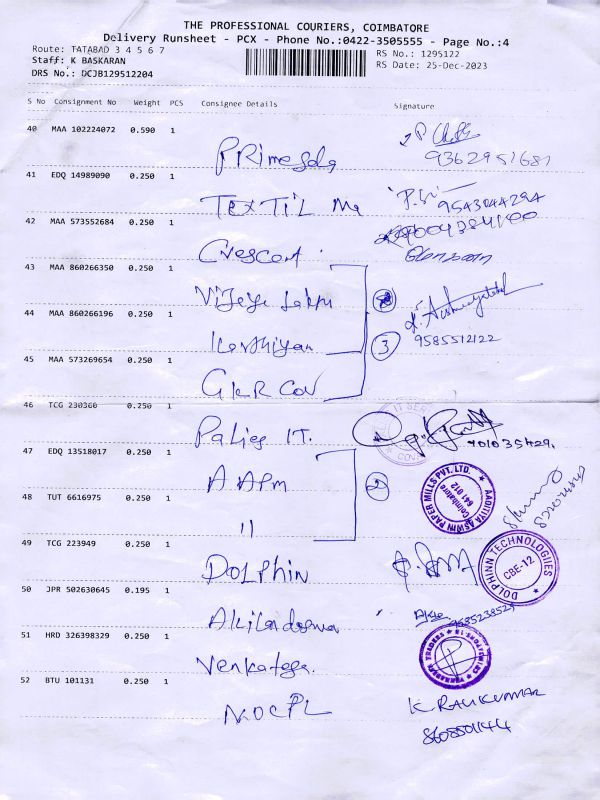 THE PROFESSIONAL COURIERS, COIMBATORE
Delivery Runsheet - PCX - Phone No.:0422-3505555 - Page No.:4
Route: TATABAD 3 4 5 6 7
Staff: K BASKARAN
DRS No.: DCJB129512204
RS No.: 1295122
RS Date: 25-Dec-2023
S No Consignment No Weight PCS Consignee Details Signature
40 MAA 102224072 0.590 1
9362951681
41 EDQ 14989090 0.250 1
TEXTIL Me
9543044294
42 MAA 573552684 0.250 1
Crescent
43 MAA 860266350 0.250 1
44 MAA 860266196 0.250 1
Karthiyan
3
9585512122
45 MAA 573269654 0.250 1
GKR COV
46 TCG 230360 0.250 1
IT.
47 EDQ 13518017 0.250 1
AAPM
2
AADITYA ASWIN PAPER MILLS PVT. LTD.
Coimbatore
641 012
48 TUT 6616975 0.250 1
"
49 TCG 223949 0.250 1
DOLPHIN
DOLPHINN TECHNOLOGIES
CBE-12
50 JPR 502630645 0.195 1
51 HRD 326398329 0.250 1
Venkatesa.
52 BTU 101131 0.250 1
NOCPL
K RAVIKUMAR
8608501144